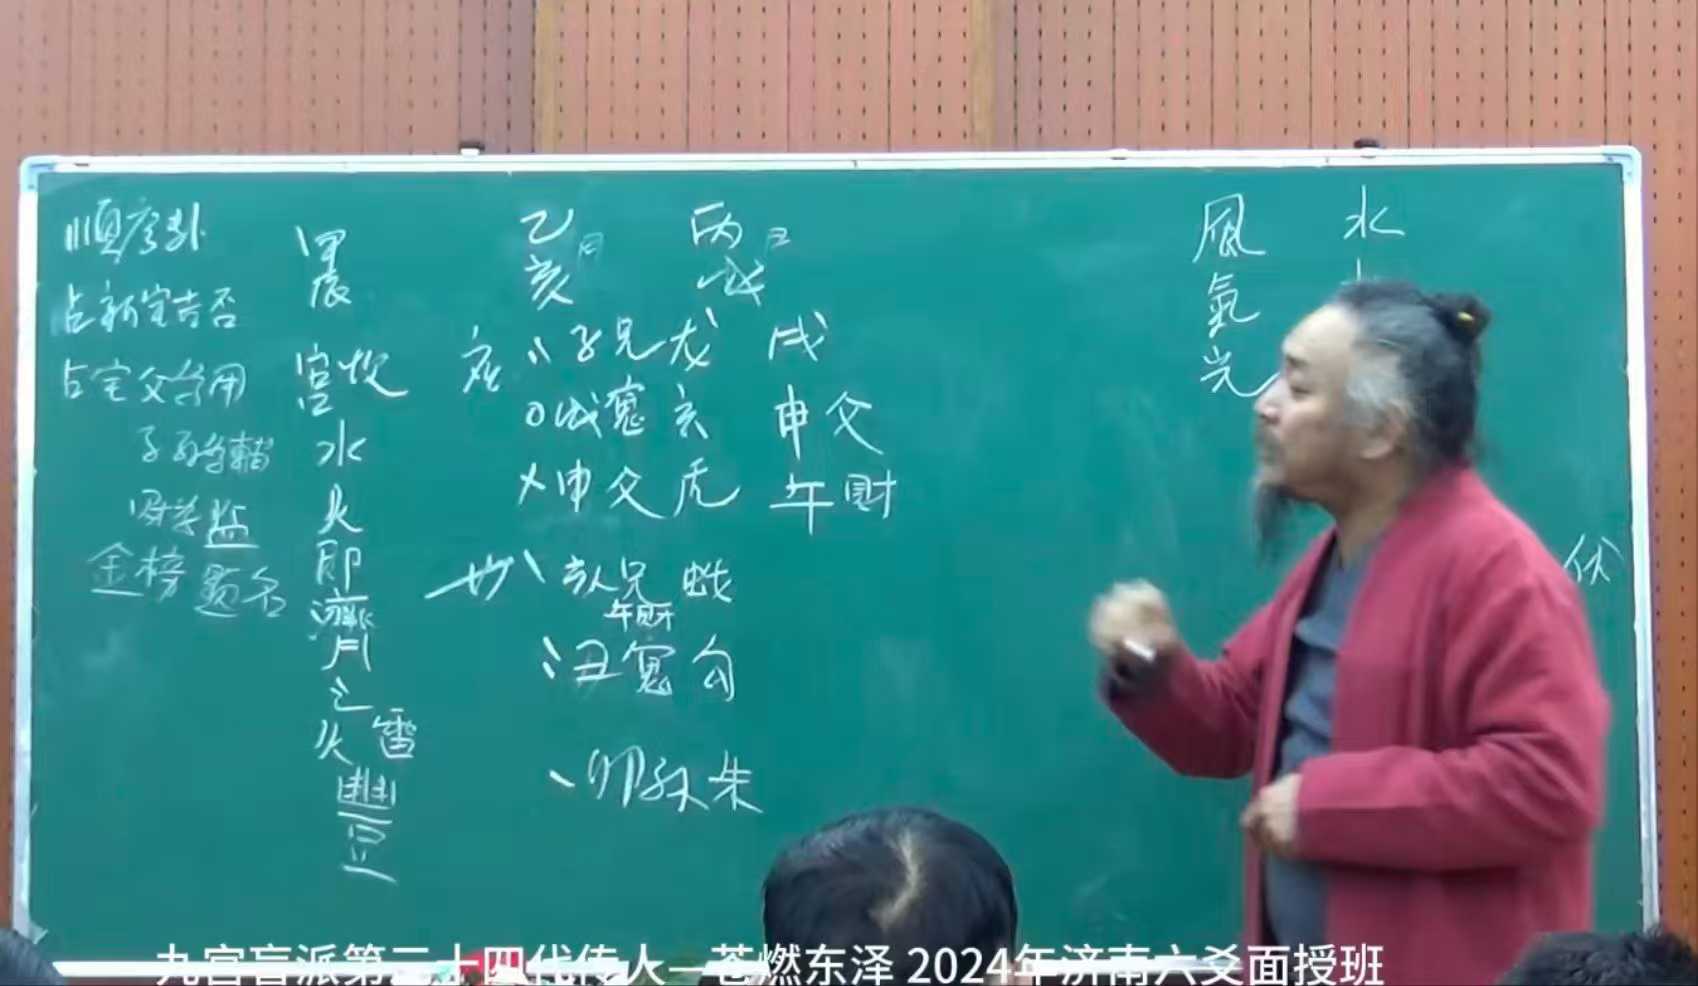 順序卦
占新宅吉否
占宅父為用
子孫為輔
財為監
金榜題名
震
宫坎
水
火
即
濟
月
之
火雷
豐
乙亥月
丙戌日
应〃子兄龙 戌
0戌鬼玄 申父
メ申父虎 午財
世、亥兄蛇
午財
〃丑鬼勾
、卯孙朱
風
氣
光
水
伏
九宫盲派第二十四代传人—苍燃东泽 2024年济南六爻面授班